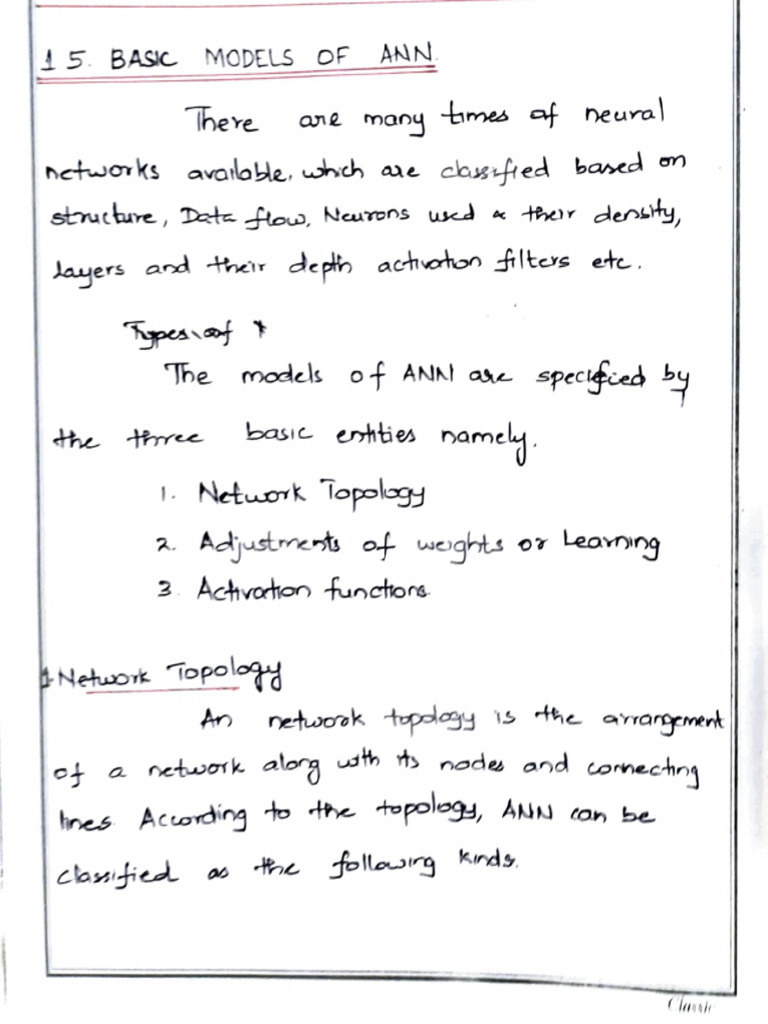 1 5. BASIC MODELS OF ANN.
There are many times of neural
networks available, which are classified based on
structure, Data flow, Neurons used & their density,
layers and their depth activation filters etc.
Types of
The models of ANN are specified by
the three basic entities namely.
1. Network Topology
2. Adjustments of weights or Learning
3. Activation functions
1. Network Topology
An network topology is the arrangement
of a network along with its nodes and connecting
lines. According to the topology, ANN can be
classified as the following kinds.
Classic